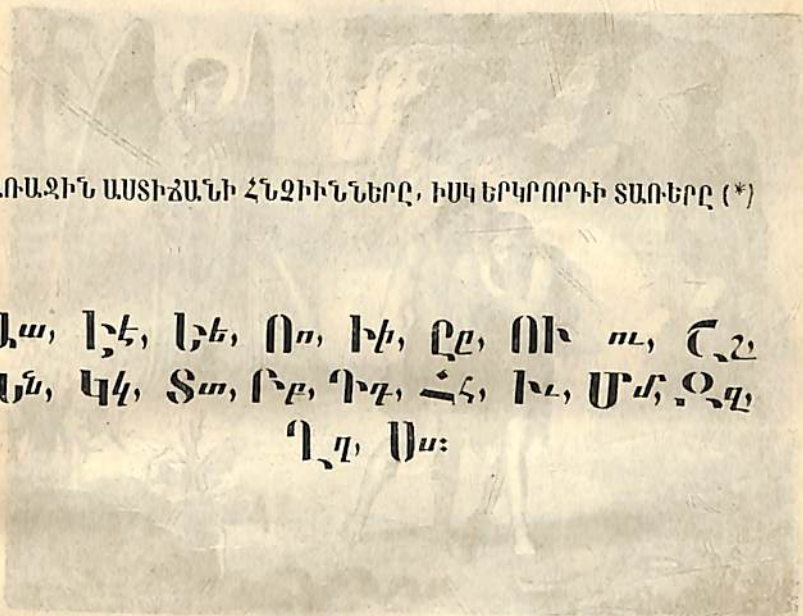 ՌԱՋԻՆ ԱՍՏԻՃԱՆԻ ՀՆՉԻՒՆՆԵՐԸ, ԻՍԿ ԵՐԿՐՈՐԴԻ ՏԱՌԵՐԸ (*)
Աա, Էէ, Եե, Ոո, Իի, Ըը, ՈՒ ու, Շշ
Նն, Կկ, Տտ, Րր, Դդ, Հհ, Իւ, Մմ, Զզ,
Ղղ, Սս: